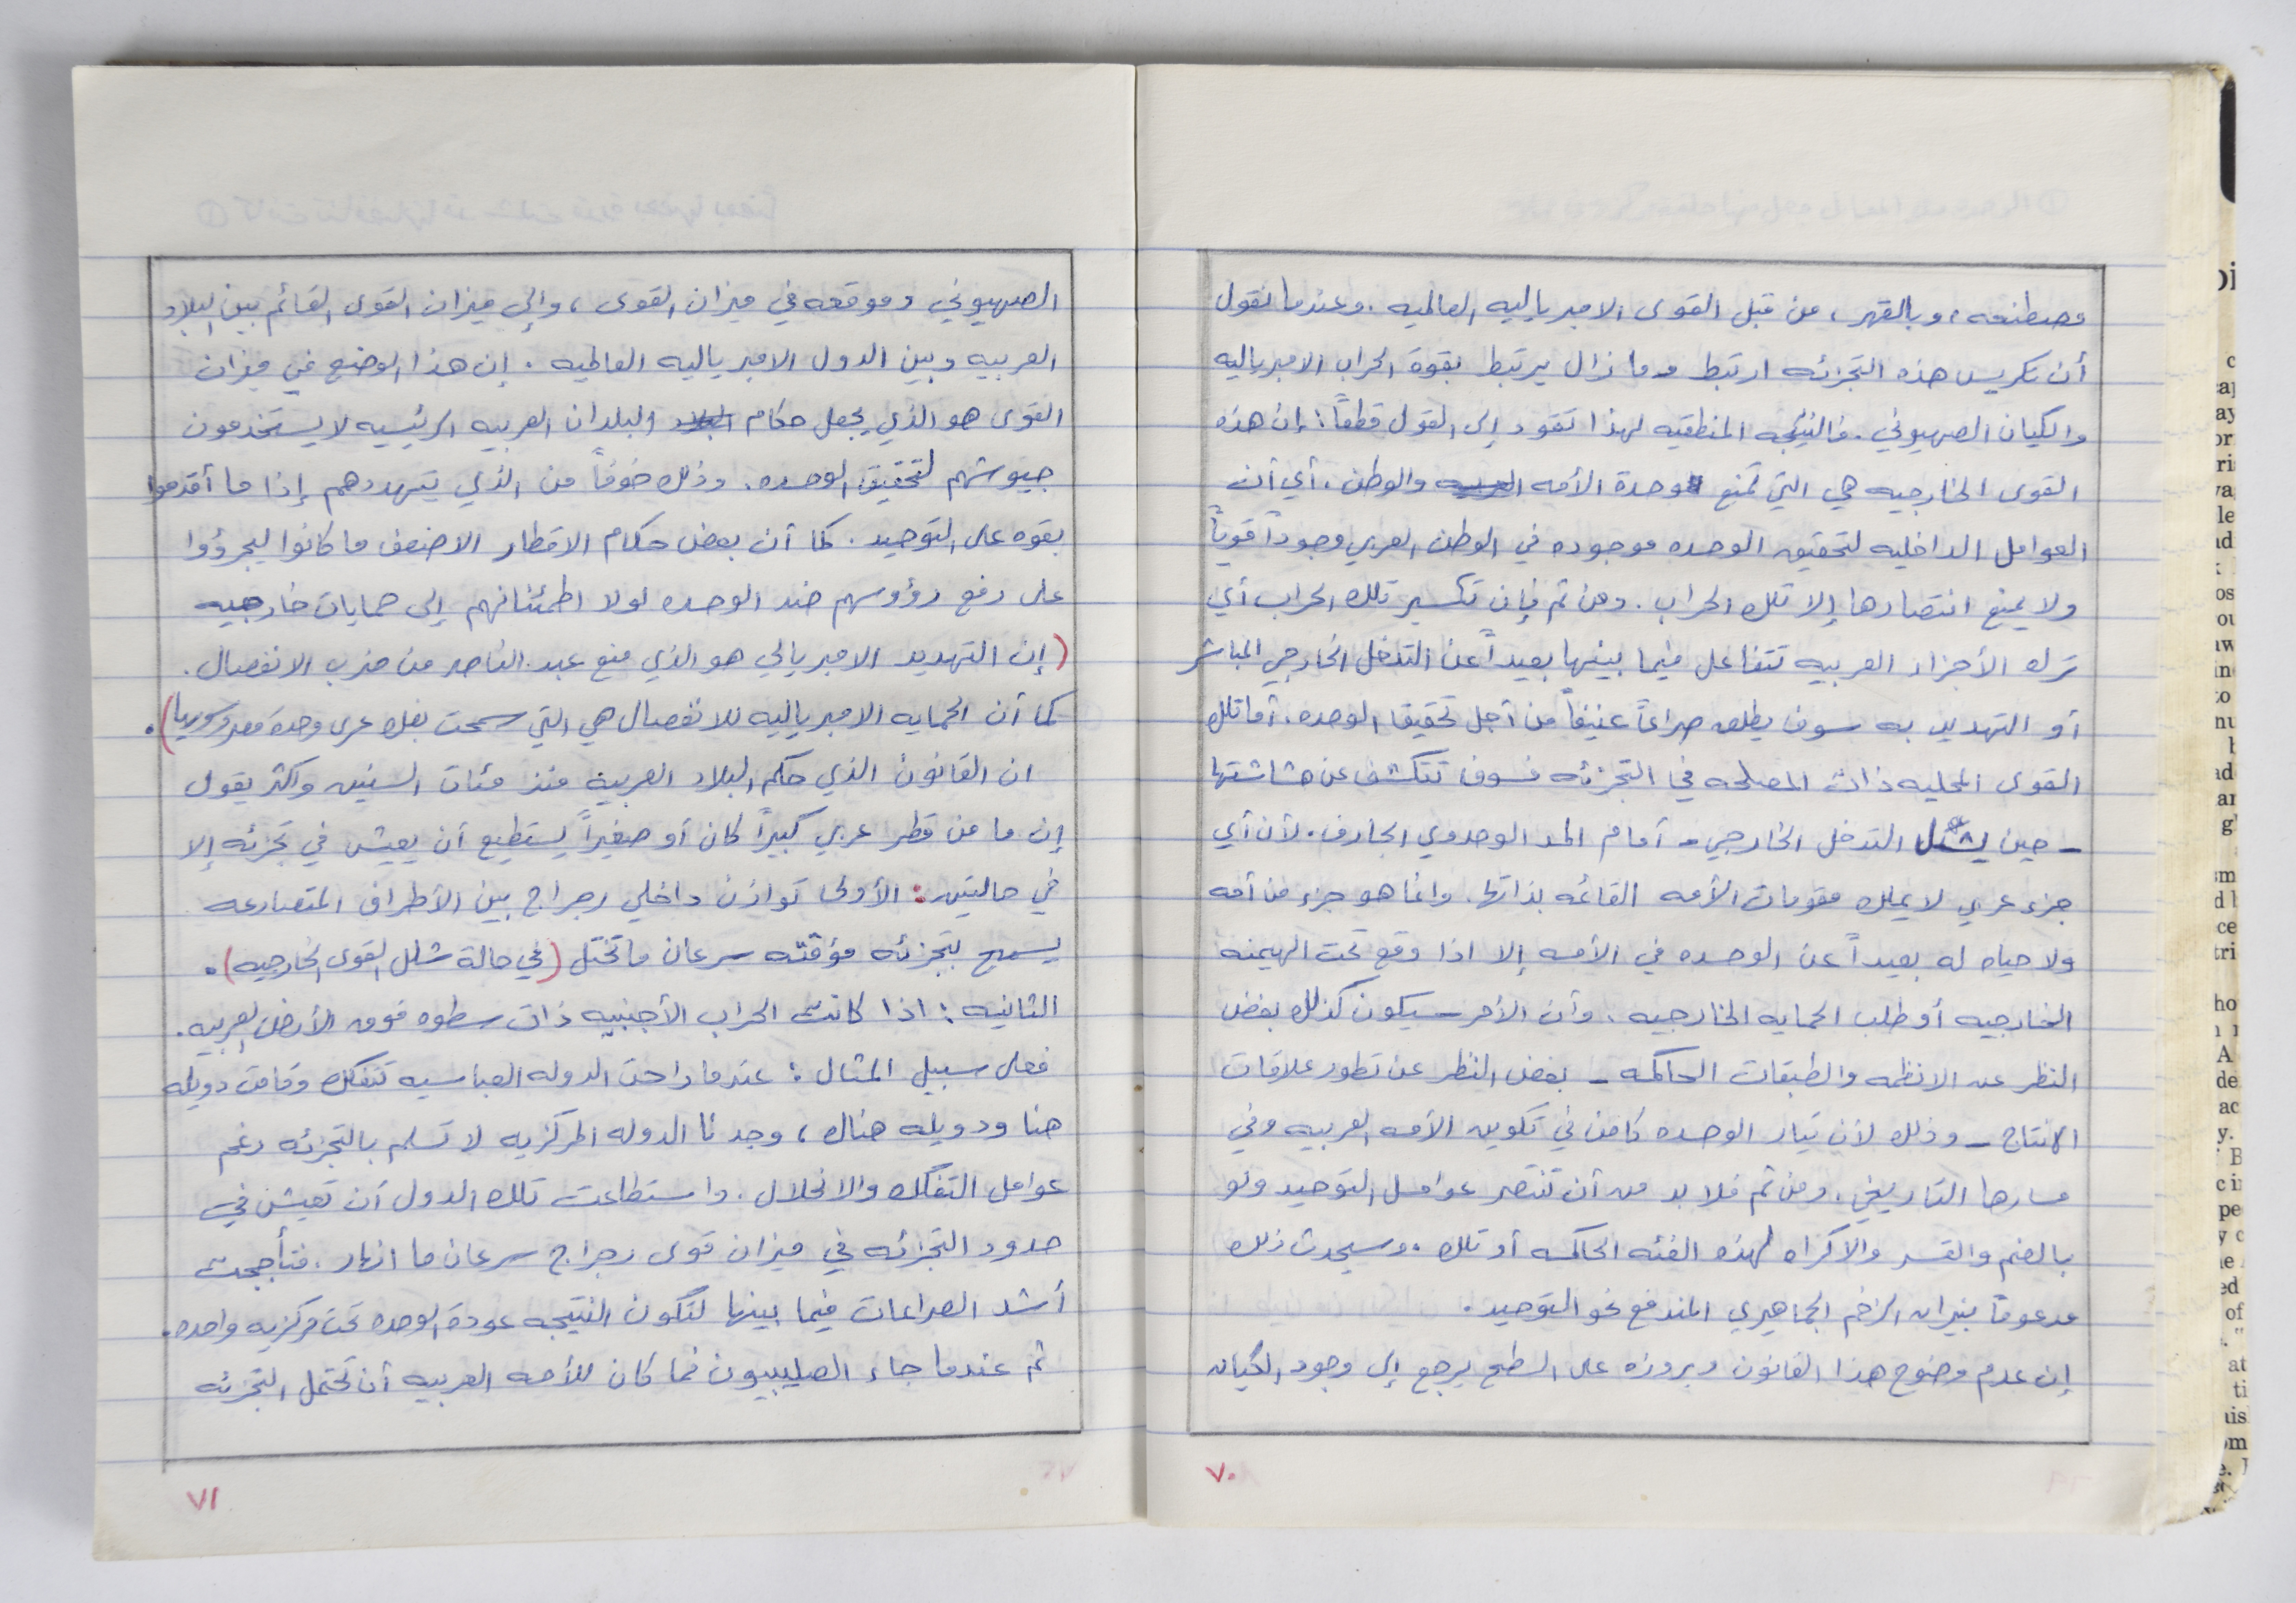 مصطنعه، وبالقهر، من قبل القوى الامبرياليه العالميه. وعندما نقول
أن تكريس هذه التجزئه ارتبط وما زال يرتبط بقوة الحراب الامبرياليه
والكيان الصهيوني. فالنتيجه المنطقيه لهذا تقود إلى القول قطعاً: إن هذه
القوى الخارجيه هي التي تمنع وحدة الأمه العربيه والوطن، أي أن
العوامل الداخليه لتحقيق الوحده موجوده في الوطن العربي وجوداً قوياً
ولا يمنع انتصارها إلا تلك الحراب. ومن ثم فإن تكسير تلك الحراب أي
ترك الأجزاء العربيه تتفاعل فيما بينها بعيداً عن التدخل الخارجي المباشر
أو التهديد به سوف يطلق صراعاً عنيفاً من أجل تحقيق الوحده. أما تلك
القوى المحليه ذات المصلحه في التجزئه فسوف تتكشف عن هشاشتها
- حين يشل التدخل الخارجي - أمام المد الوحدوي الجارف. لأن أي
جزء عربي لا يملك مقومات الأمه القائمه بذاتها. وانما هو جزء من أمه
ولا حياه له بعيداً عن الوحده في الأمه إلا اذا وقع تحت الهيمنه
الخارجيه أو طلب الحمايه الخارجيه. وأن الأمر سيكون كذلك بغض
النظر عن الانظمه والطبقات الحاكمه - بغض النظر عن تطور علاقات
الانتاج - وذلك لأن تيار الوحده كامن في تكوين الأمه العربيه وفي
مسارها التاريخي. ومن ثم فلا بد من أن تنتصر عوامل التوحيد ولو
بالضم والقسر والاكراه لهذه الفئه الحاكمه أو تلك. وسيحدث ذلك
مدعوماً بنيران الزخم الجماهيري المندفع نحو التوحيد.
إن عدم وضوح هذا القانون وبروزه على السطح يرجع إلى وجود الكيان
٧٠
الصهيوني وموقعه في ميزان القوى، وإلى ميزان القوى القائم بين البلاد
العربيه وبين الدول الامبرياليه العالميه. إن هذا الوضع في ميزان
القوى هو الذي يجعل حكام البلاد البلدان العربيه الرئيسيه لا يستخدمون
جيوشهم لتحقيق الوحده. وذلك خوفاً من الذي يتهددهم إذا ما أقدموا
بقوه على التوحيد. كما أن بعض حكام الاقطار الاضعف ما كانوا ليجرؤوا
على رفع رؤوسهم ضد الوحده لولا اطمئنانهم إلى حمايات خارجيه
(إن التهديد الامبريالي هو الذي منع عبد الناصر من ضرب الانفصال.
كما أن الحمايه الامبرياليه للانفصال هي التي سمحت بفك عرى وحدة مصر وسوريا).
ان القانون الذي حكم البلاد العربية منذ مئات السنين واكثر يقول
إن ما من قطر عربي كبيراً كان أو صغيراً يستطيع أن يعيش في تجزئه إلا
في حالتين: الأولى توازن داخلي رجراج بين الأطراف المتصارعه
يسمح بتجزئه مؤقته سرعان ما تختل (في حالة شلل القوى الخارجيه).
الثانيه: اذا كانت الحراب الأجنبيه ذات سطوه فوق الأرض العربيه.
فعلى سبيل المثال: عندما راحت الدوله العباسيه تتفكك وقامت دويله
هنا ودويله هناك، وجدنا الدوله المركزيه لا تسلم بالتجزئه رغم
عوامل التفكك والانحلال. واستطاعت تلك الدول أن تعيش في
حدود التجزئه في ميزان قوى رجراج سرعان ما انهار. فتأججت
أشد الصراعات فيما بينها لتكون النتيجه عودة الوحده تحت مركزيه واحده.
ثم عندما جاء الصليبيون فما كان للأمه العربيه أن تحتمل التجزئه
٧١